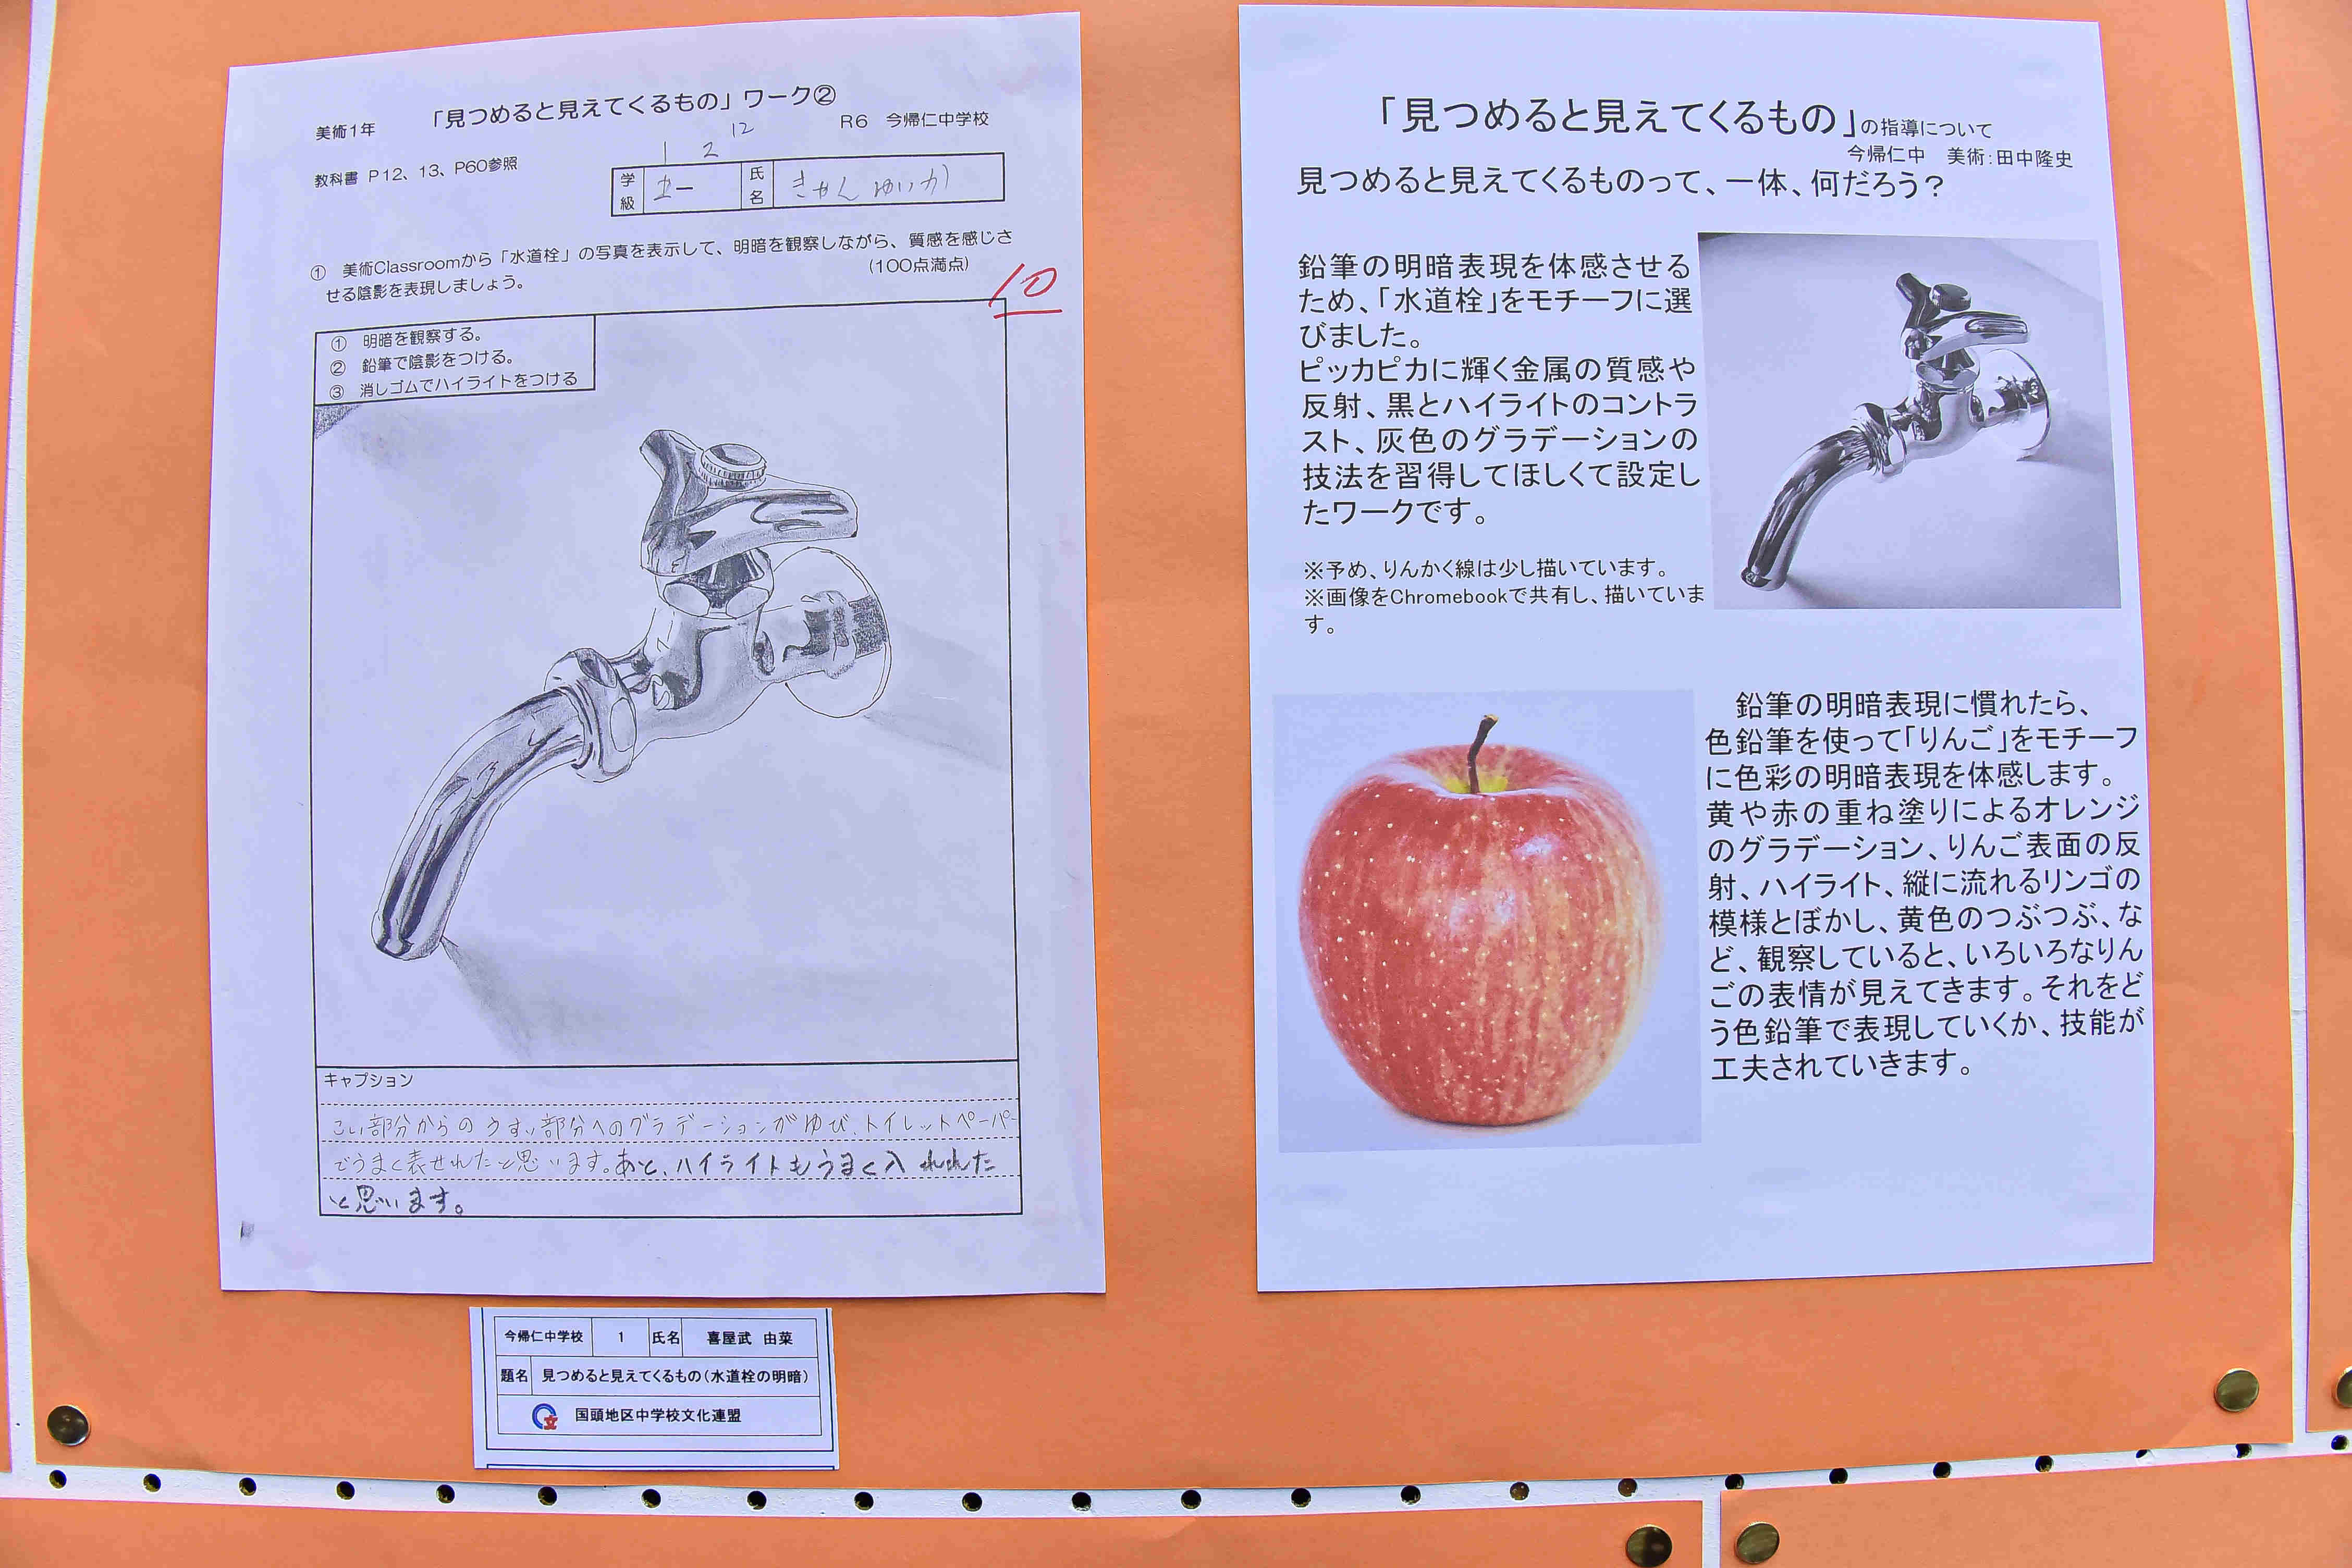 「見つめると見えてくるもの」ワーク②
美術1年
R6 今帰仁中学校
教科書 P12、13、P60参照
1 2 12
学級
氏名 きゃん ゆいか
① 美術Classroomから「水道栓」の写真を表示して、明暗を観察しながら、質感を感じさ
せる陰影を表現しましょう。
(100点満点)
10
① 明暗を観察する。
② 鉛筆で陰影をつける。
③ 消しゴムでハイライトをつける
キャプション
こい部分からのうすい部分へのグラデーションがゆび、トイレットペーパー
でうまく表せれたと思います。あと、ハイライトもうまく入れれた
と思います。
今帰仁中学校 1 氏名 喜屋武 由菜
題名 見つめると見えてくるもの(水道栓の明暗)
文
国頭地区中学校文化連盟
「見つめると見えてくるもの」の指導について
今帰仁中 美術:田中隆史
見つめると見えてくるものって、一体、何だろう?
鉛筆の明暗表現を体感させる
ため、「水道栓」をモチーフに選
びました。
ピッカピカに輝く金属の質感や
反射、黒とハイライトのコントラ
スト、灰色のグラデーションの
技法を習得してほしくて設定し
たワークです。
※予め、りんかく線は少し描いています。
※画像をChromebookで共有し、描いていま
す。
鉛筆の明暗表現に慣れたら、
色鉛筆を使って「りんご」をモチーフ
に色彩の明暗表現を体感します。
黄や赤の重ね塗りによるオレンジ
のグラデーション、りんご表面の反
射、ハイライト、縦に流れるリンゴの
模様とぼかし、黄色のつぶつぶ、な
ど、観察していると、いろいろなりん
ごの表情が見えてきます。それをど
う色鉛筆で表現していくか、技能が
工夫されていきます。